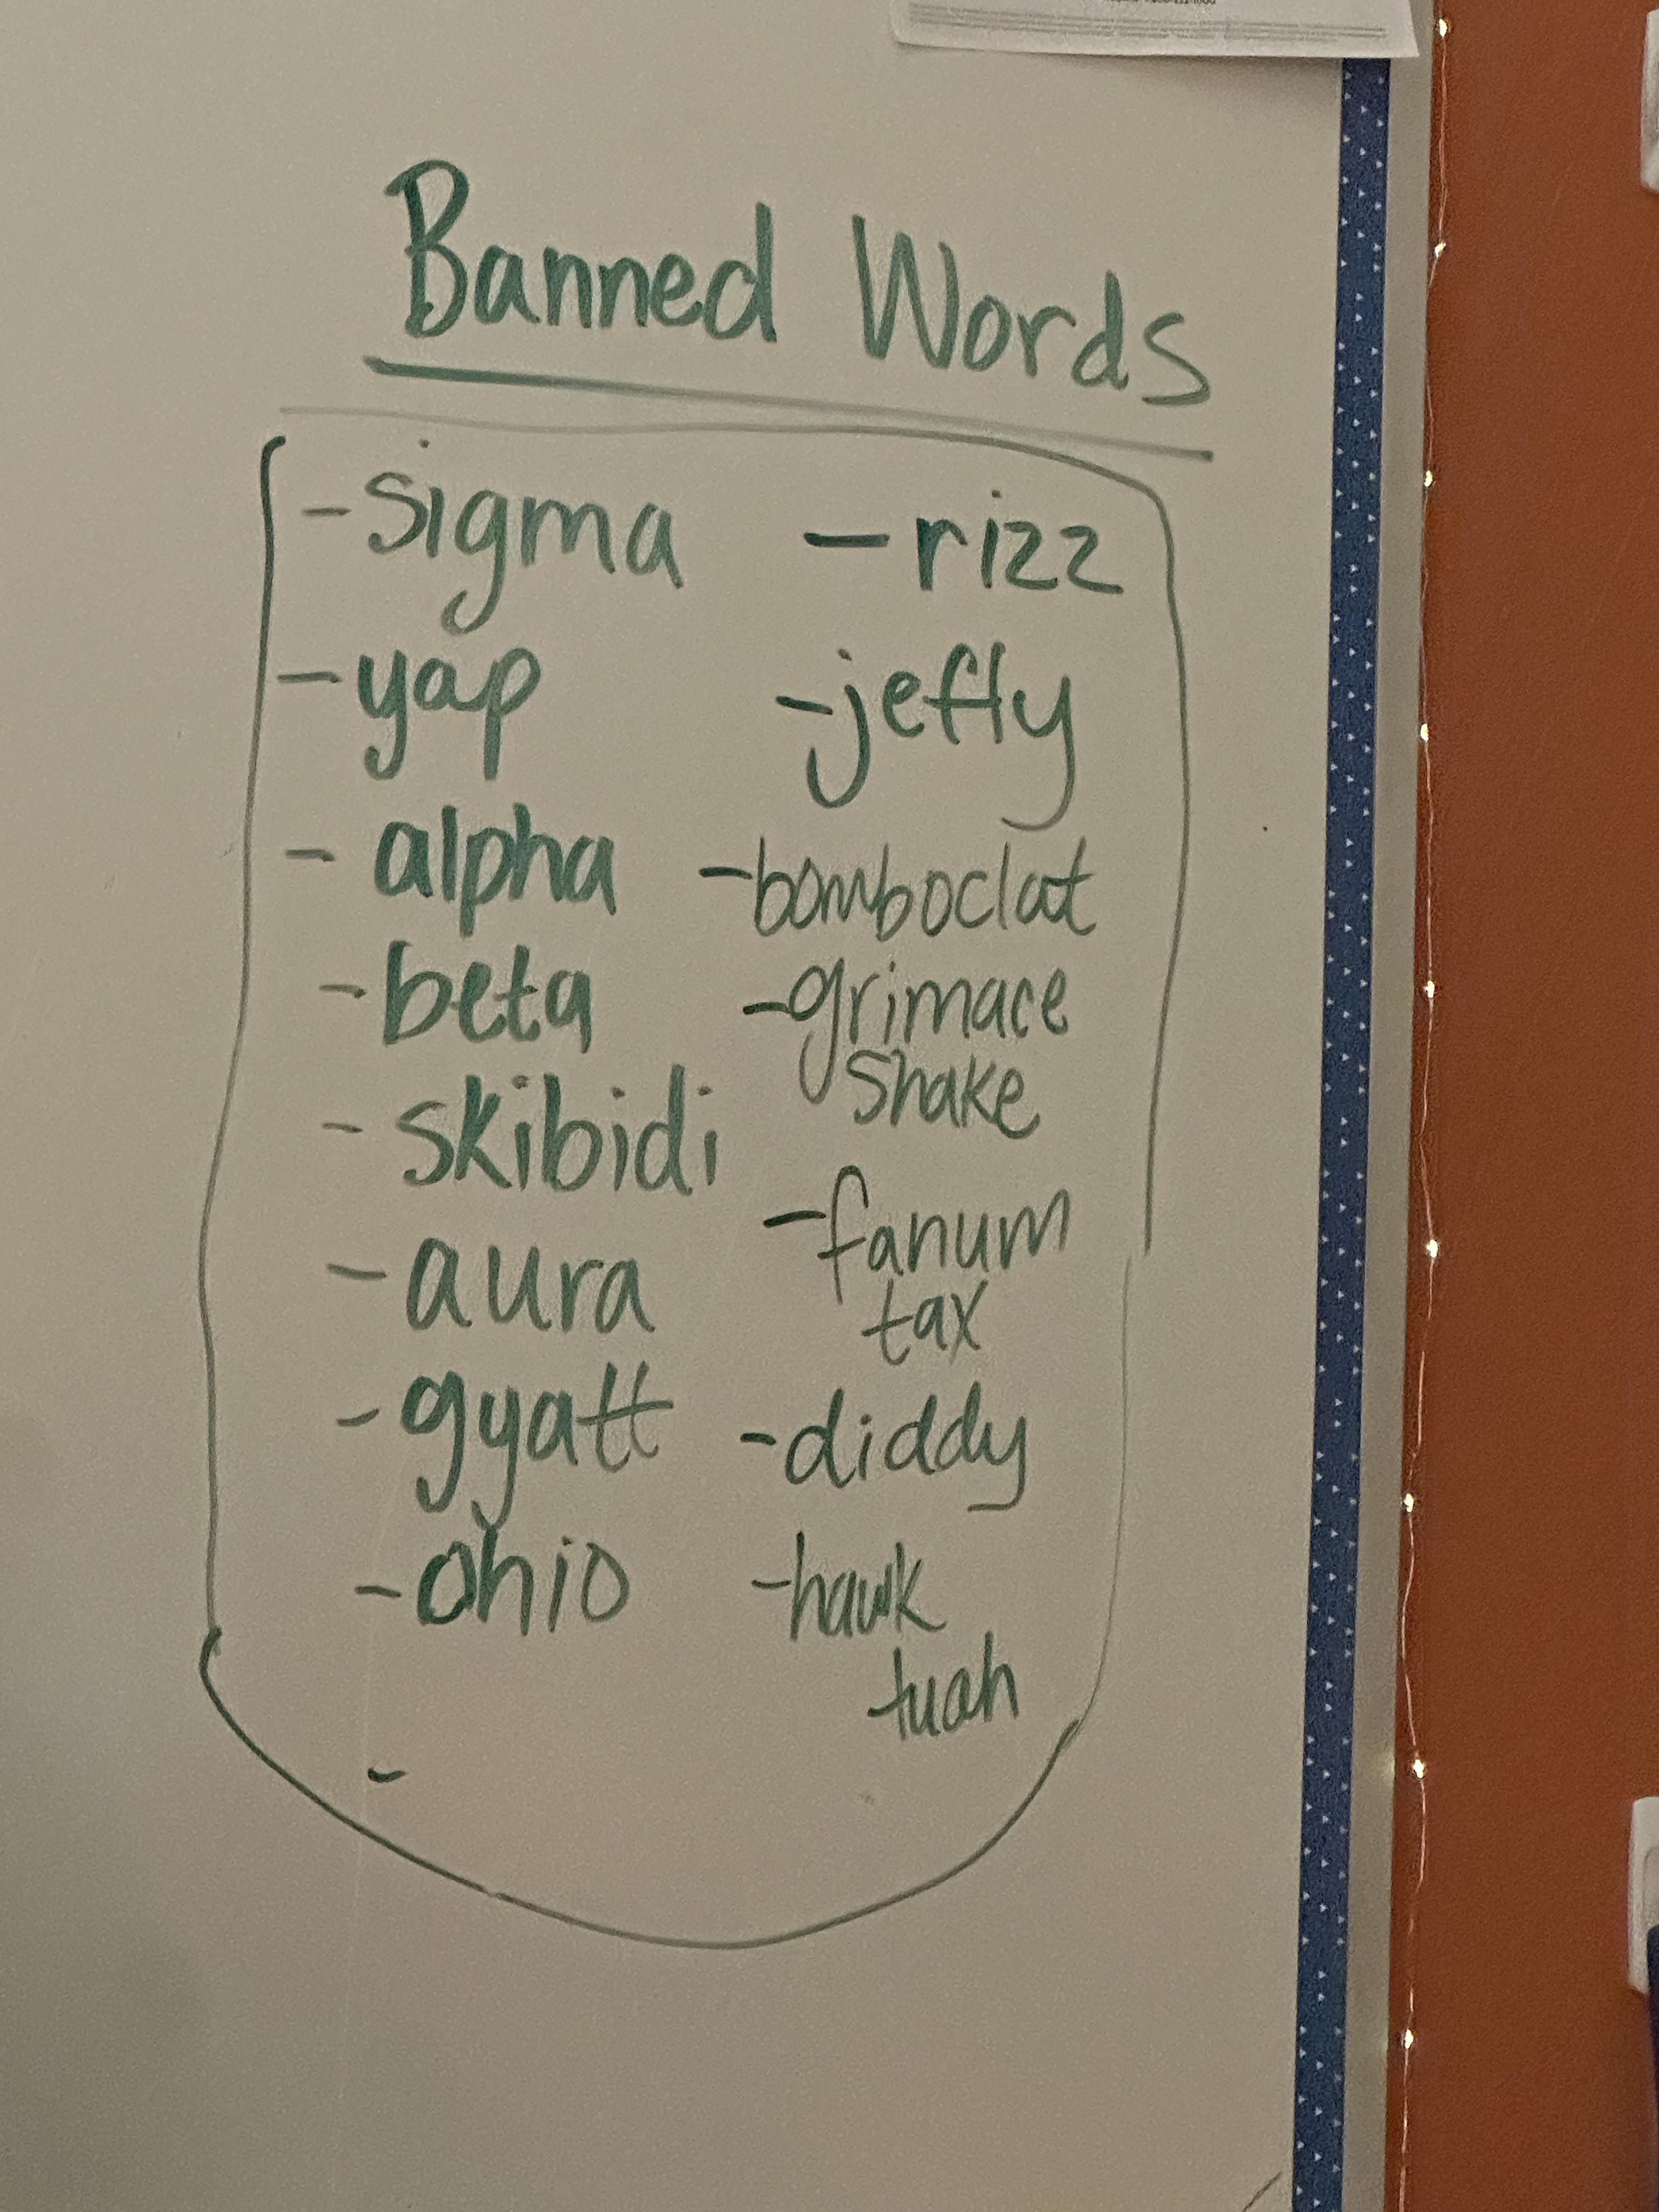 Banned Words
- sigma
- yap
- alpha
- beta
- skibidi
- aura
- gyatt
- ohio
-
- rizz
- jeffy
- bomboclat
- grimace
shake
- fanum
tax
- diddy
- hawk
tuah